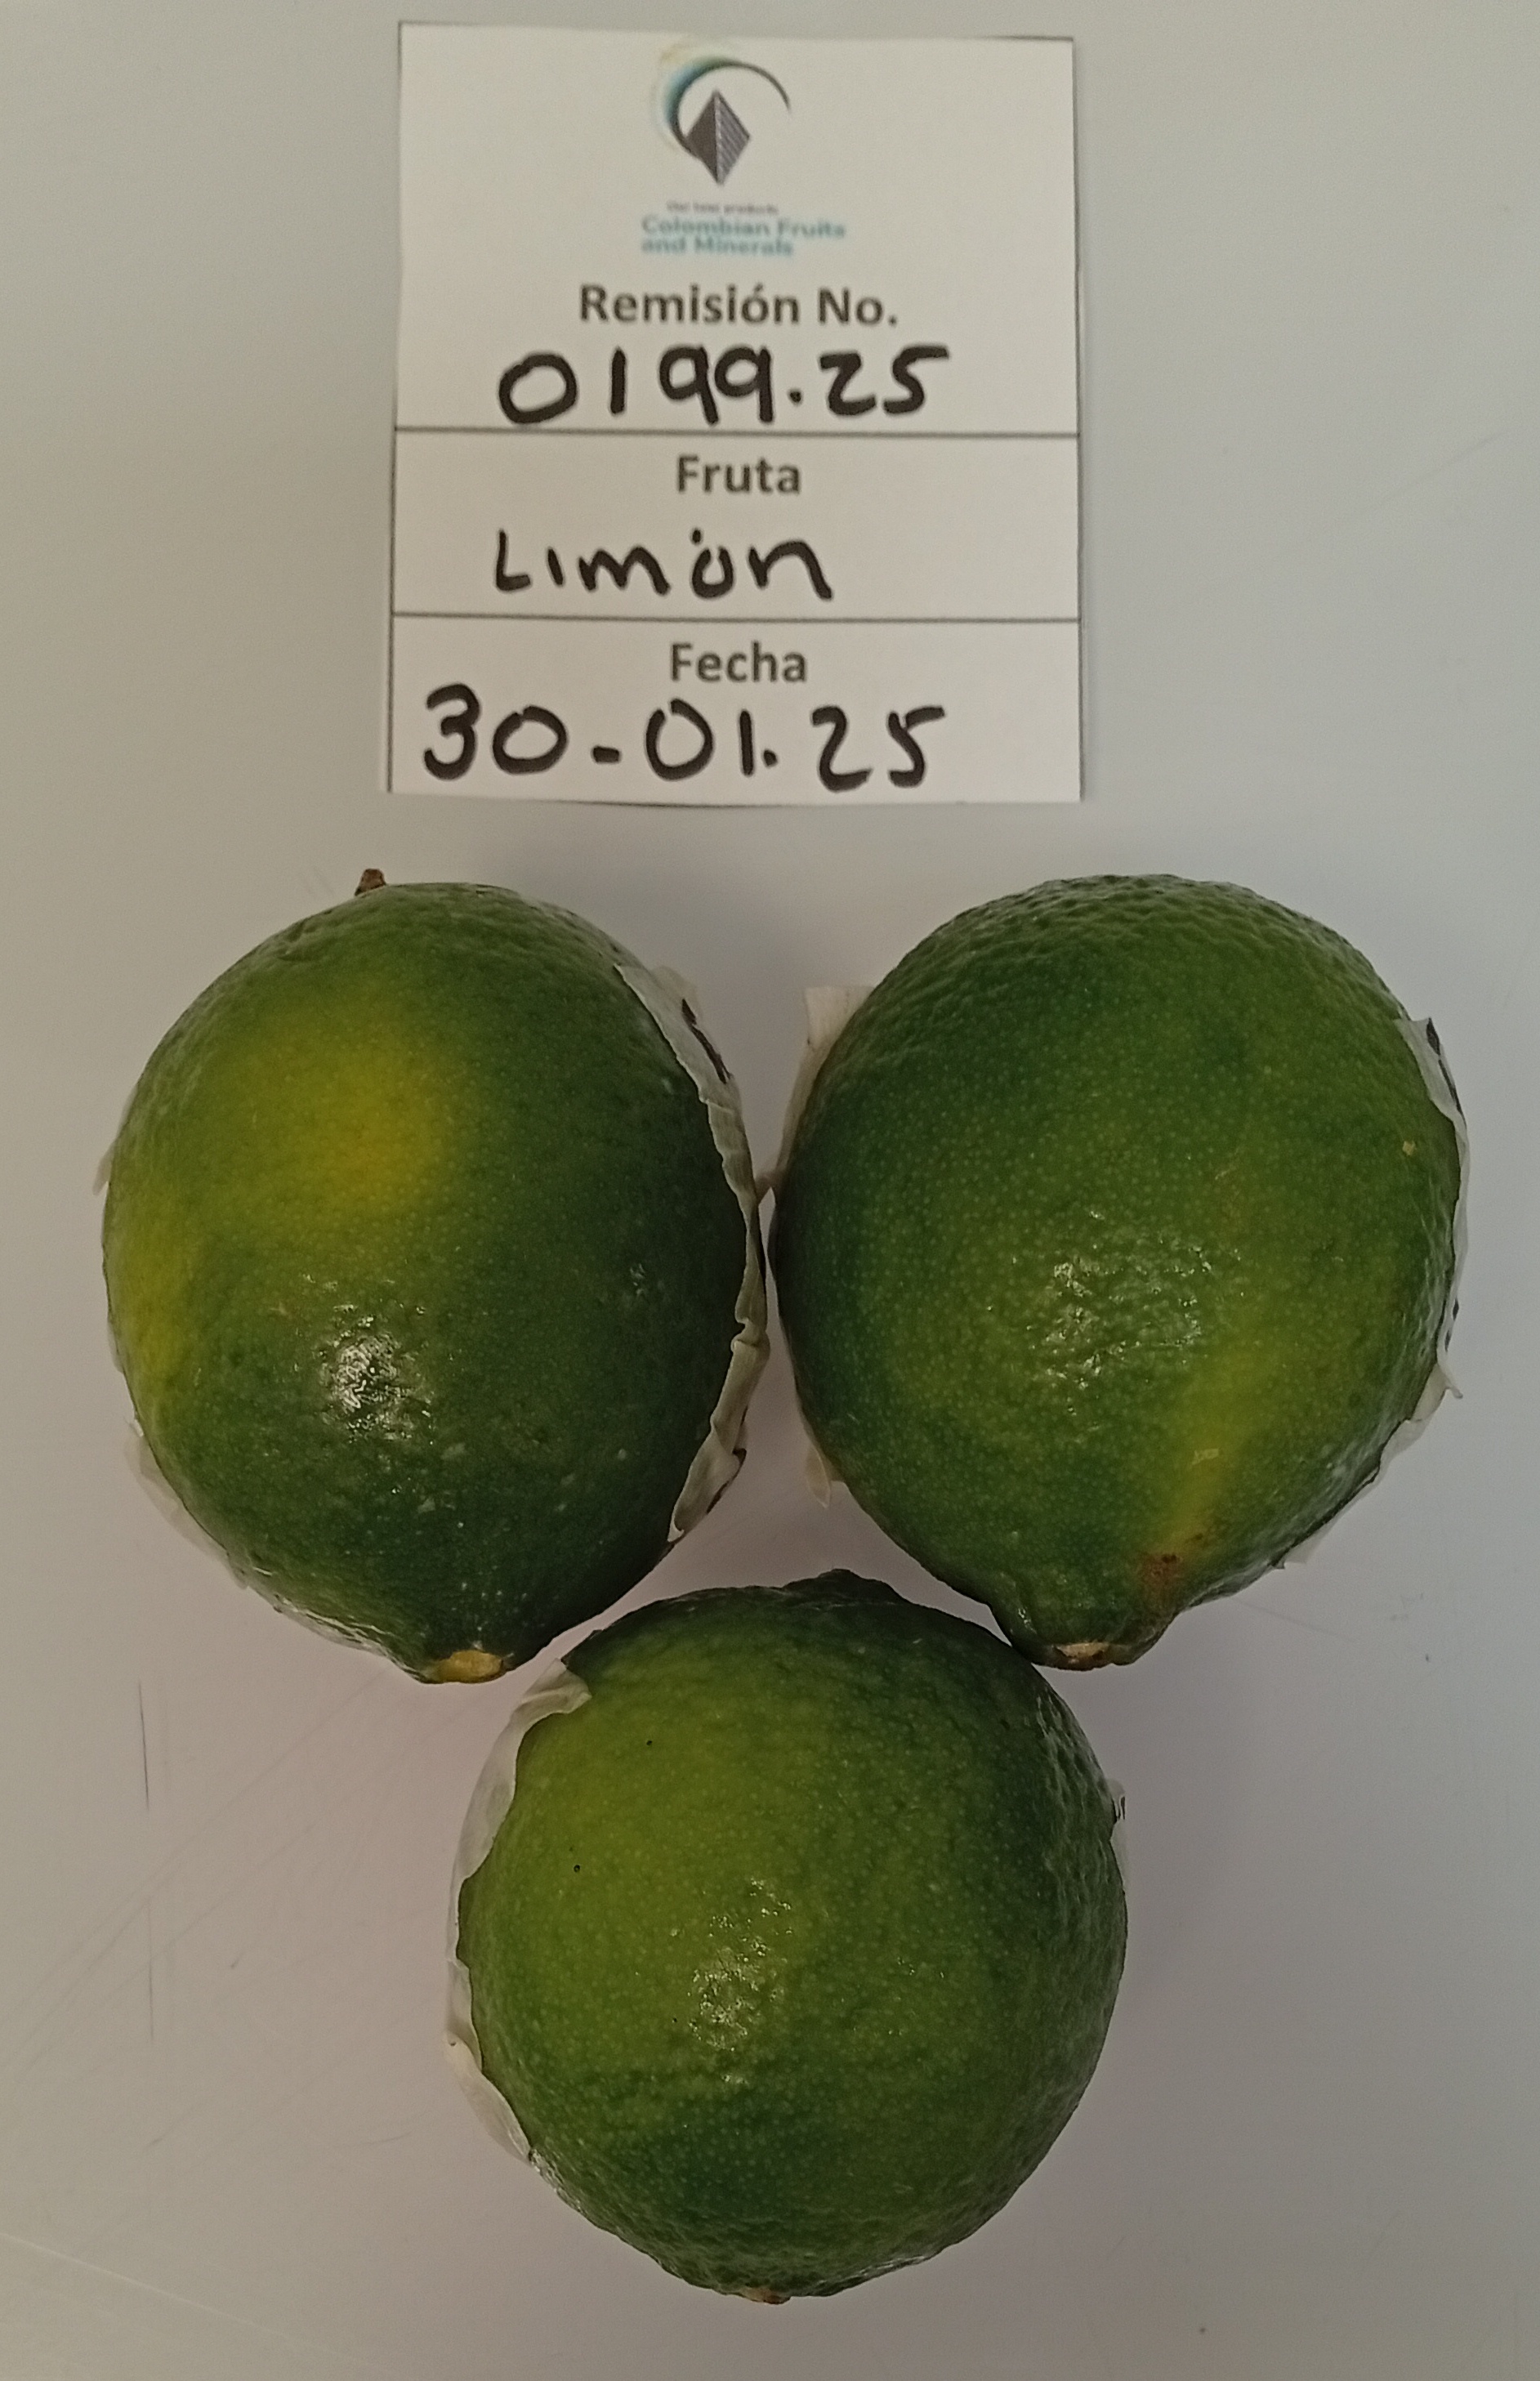 Our best products
Colombian Fruits
and Minerals
Remisión No.
0199.25
Fruta
Limón
Fecha
30-01.25